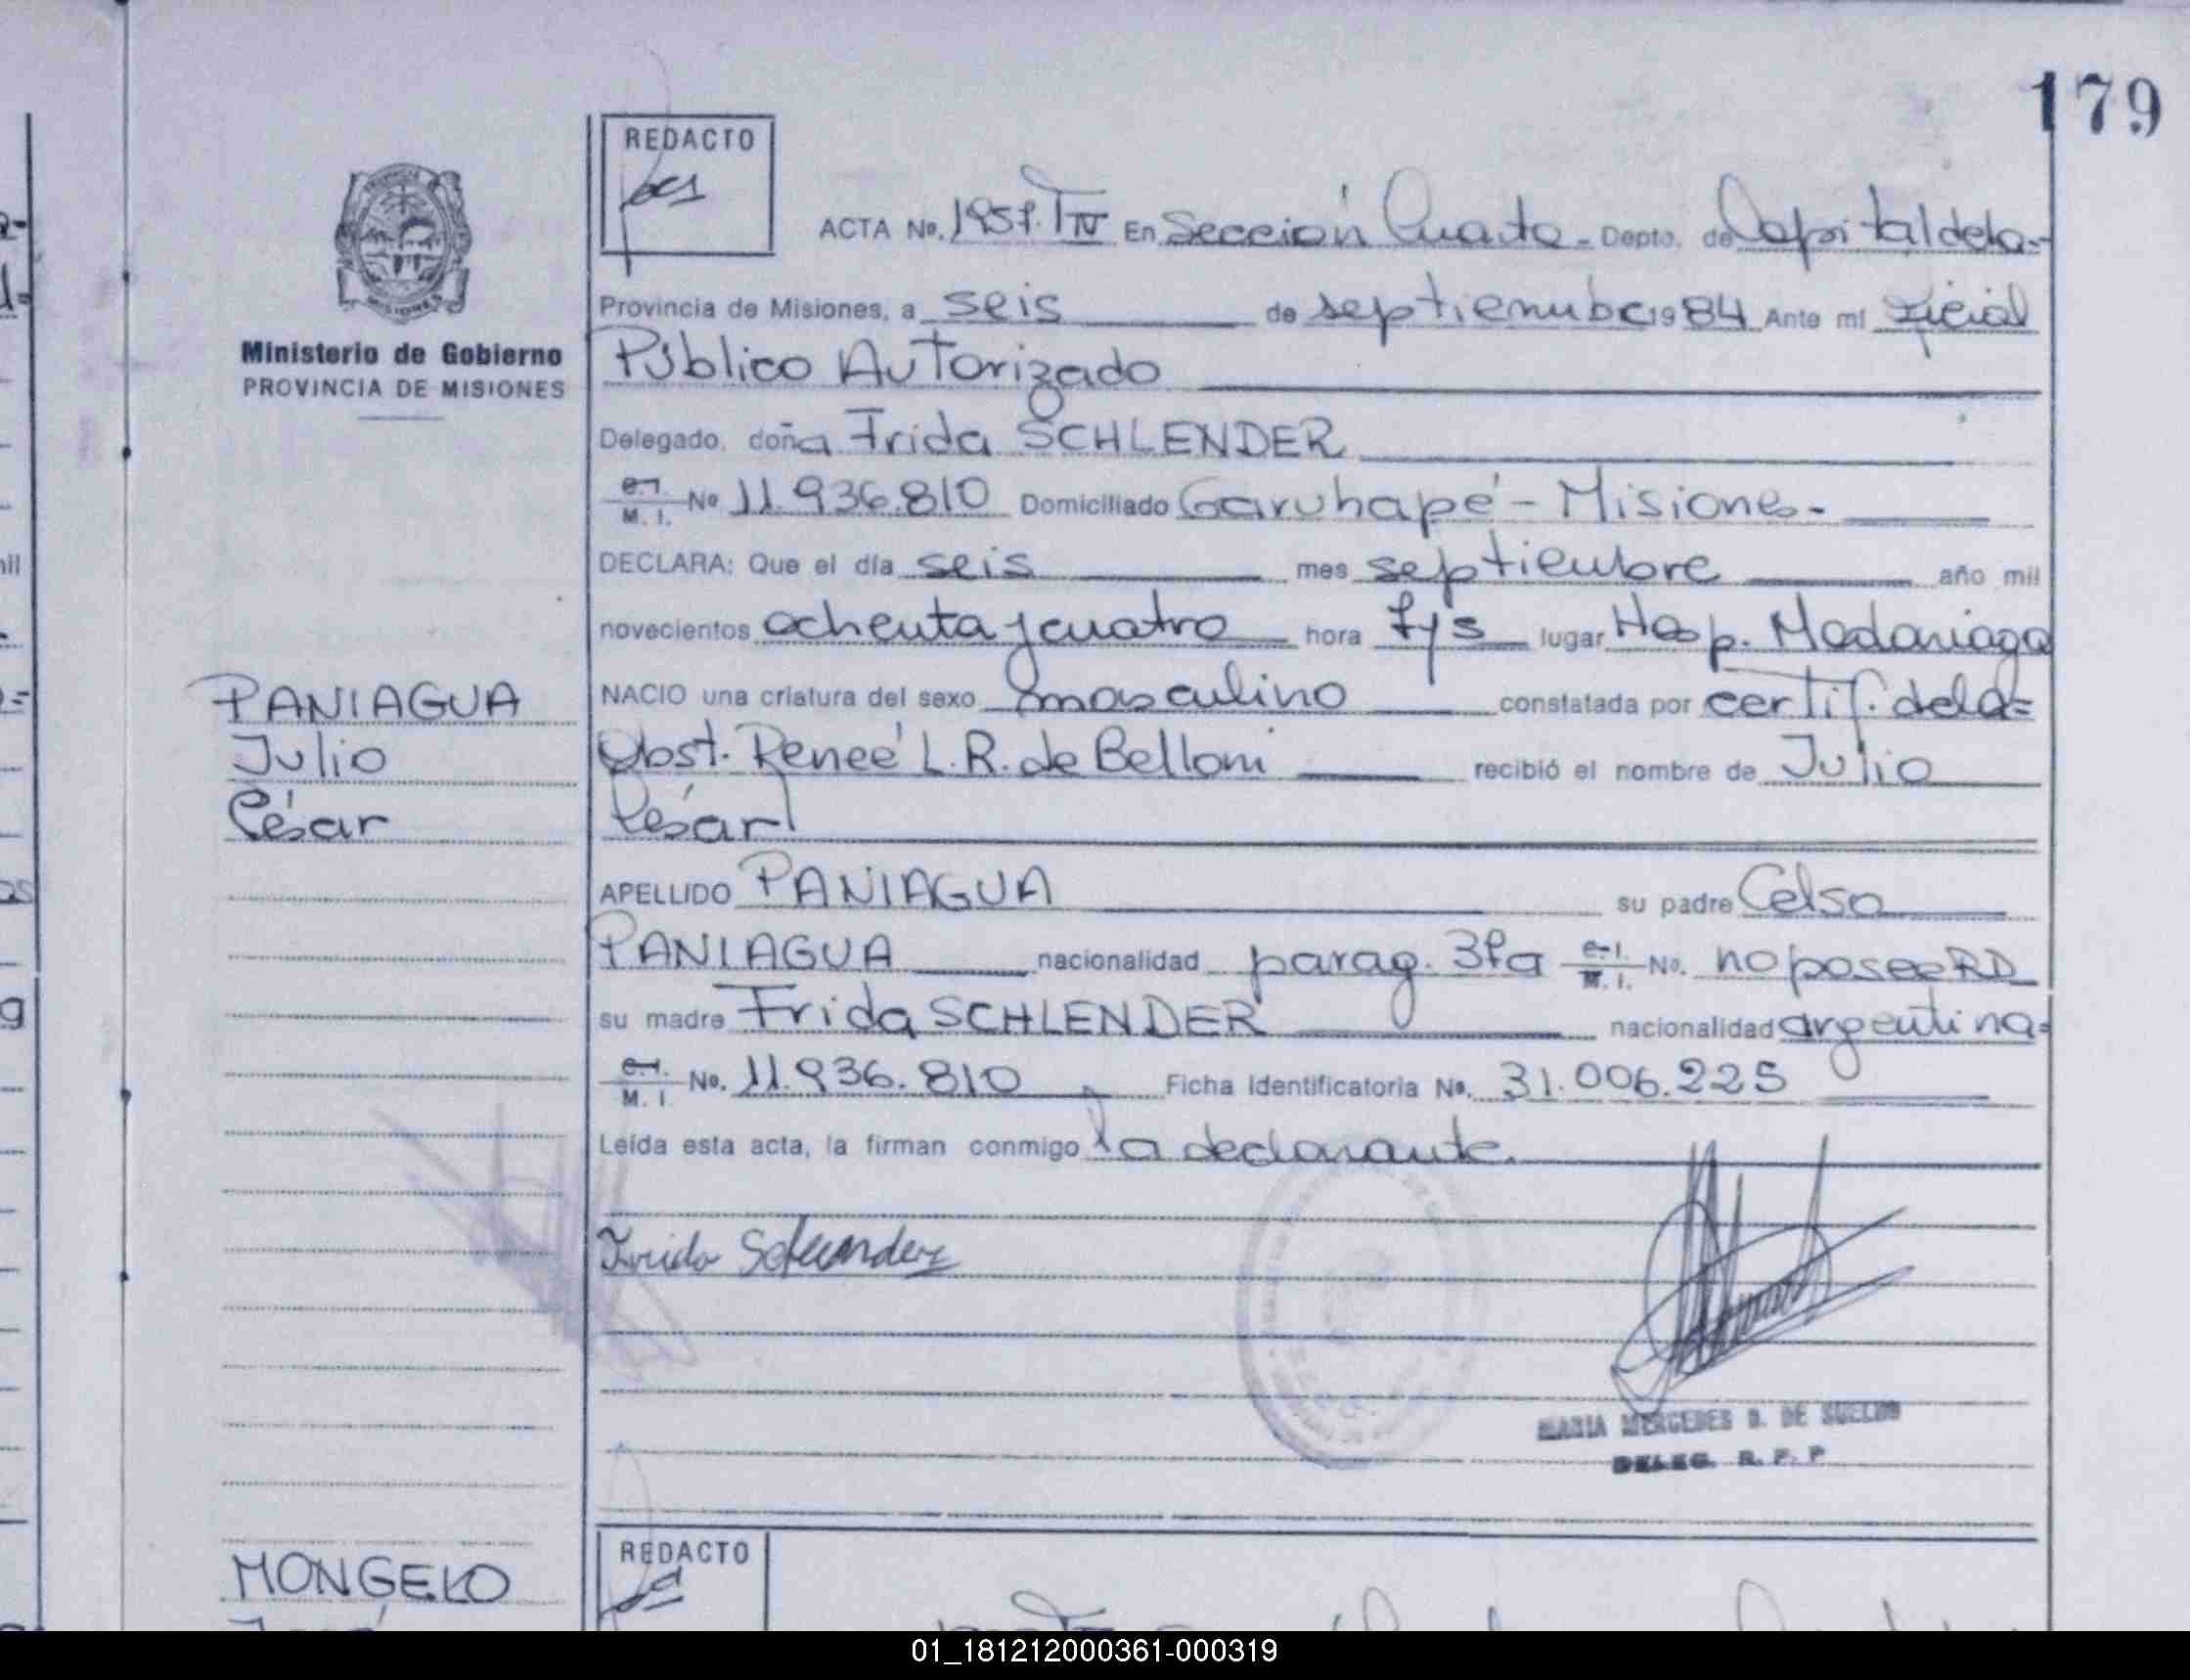 179
REDACTO
ACTA Nº. 195 T IV En Sección Cuarta - Depto. de Capital dela=
Provincia de Misiones, a seis de septiembre 1984 Ante mí
Público Autorizado
Ministerio de Gobierno
PROVINCIA DE MISIONES
Delegado, doña Frida SCHLENDER
e.I. M. I. Nº 11.936.810 Domiciliado Garuhapé - Misiones -
DECLARA: Que el día seis mes septiembre año mil
novecientos ochenta y cuatro hora lugar Hosp. Madariaga
NACIO una criatura del sexo masculino constatada por certif. dela=
Obst. Reneé L. R. de Belloni recibió el nombre de Julio
César
PANIAGUA
Julio
César
APELLIDO PANIAGUA su padre Celso
PANIAGUA nacionalidad parag. No. no posee RD
su madre Frida SCHLENDER nacionalidad argentina=
e.I. M. I. No. 11.936.810 Ficha Identificatoria No. 31.006.225
Leída esta acta, la firman conmigo la declarante.
Frida Schlender
MARIA MERCEDES D. DE
DELEG. R. P. P
MONGELO
REDACTO
01_181212000361-000319